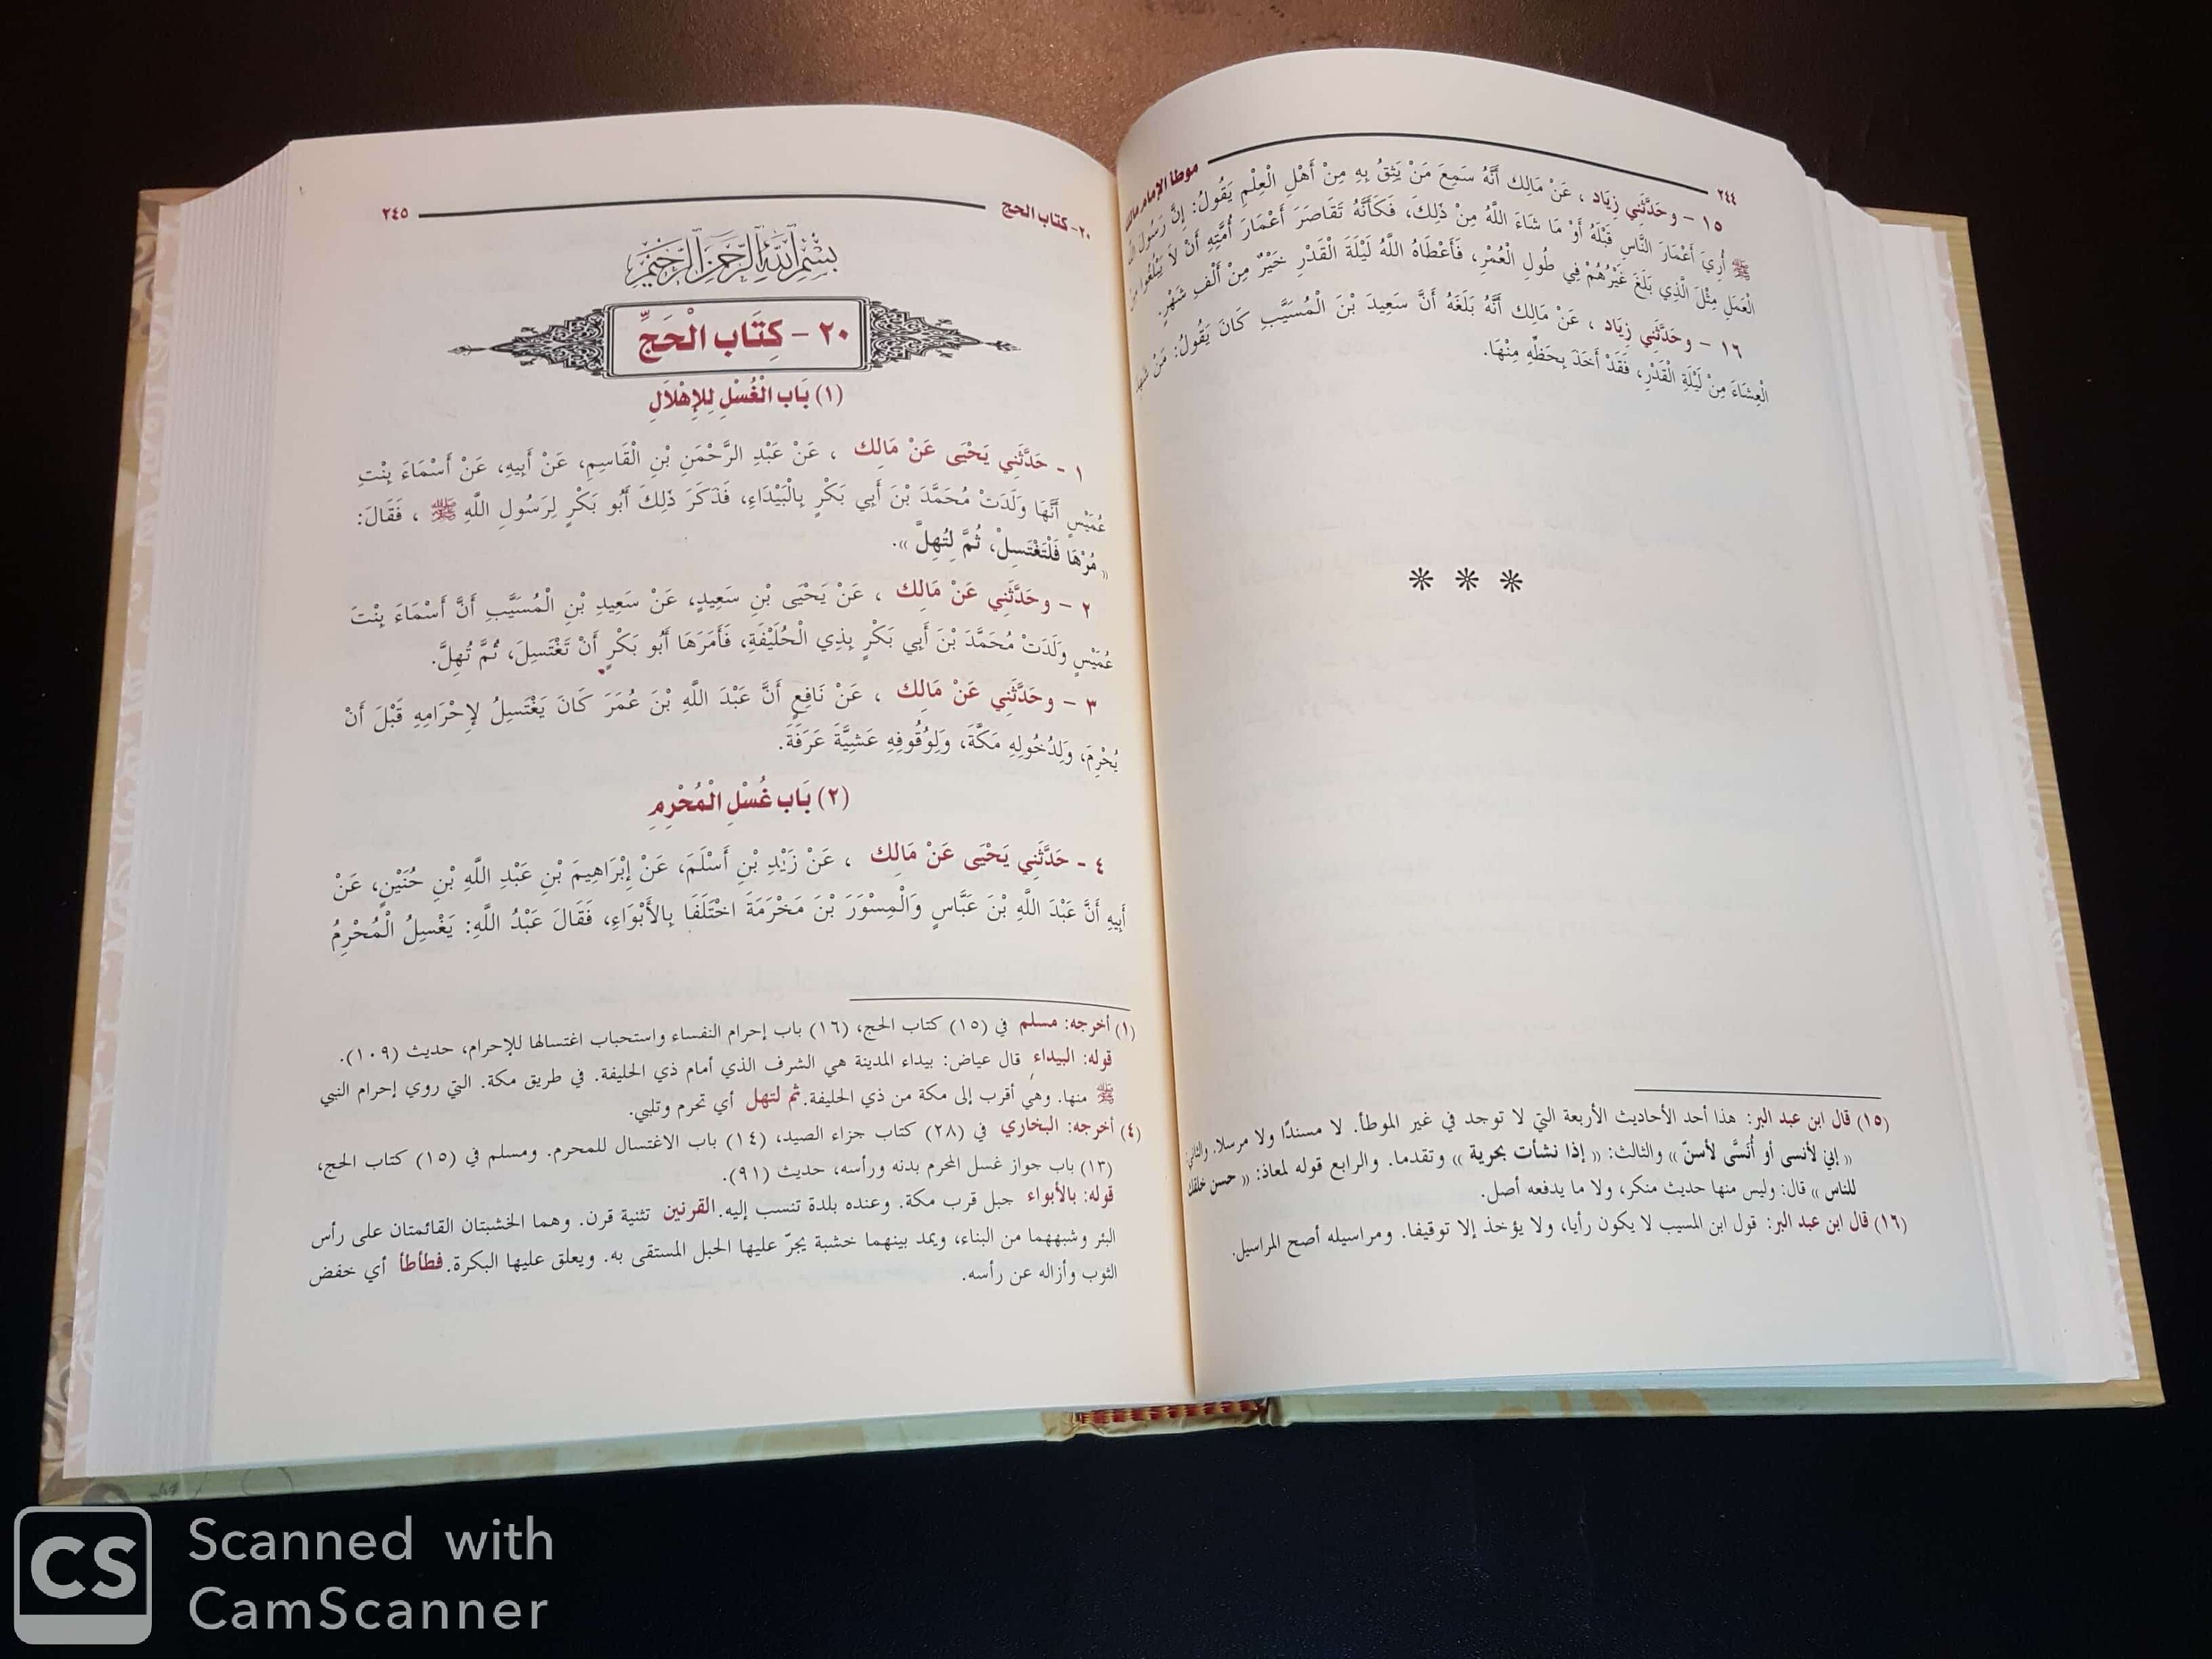 ٢٤٤
موطأ الإمام مالك
١٥ - وحَدَّثَنِي زِيَاد ، عَنْ مَالِك أَنَّهُ سَمِعَ مَنْ يَثِقُ بِهِ مِنْ أَهْلِ الْعِلْمِ يَقُولُ: إِنَّ رَسُولَ اللَّهِ
ﷺ أُرِيَ أَعْمَارَ النَّاسِ قَبْلَهُ أَوْ مَا شَاءَ اللَّهُ مِنْ ذَلِكَ، فَكَأَنَّهُ تَقَاصَرَ أَعْمَارَ أُمَّتِهِ أَنْ لاَ يَبْلُغُوا مِنَ
الْعَمَلِ مِثْلَ الَّذِي بَلَغَ غَيْرُهُمْ فِي طُولِ الْعُمْرِ، فَأَعْطَاهُ اللَّهُ لَيْلَةَ الْقَدْرِ خَيْرٌ مِنْ أَلْفِ شَهْرٍ.
١٦ - وحَدَّثَنِي زِيَاد ، عَنْ مَالِك أَنَّهُ بَلَغَهُ أَنَّ سَعِيدَ بْنَ الْمُسَيَّبِ كَانَ يَقُولُ: مَنْ شَهِدَ
الْعِشَاءَ مِنْ لَيْلَةِ الْقَدْرِ، فَقَدْ أَخَذَ بِحَظِّهِ مِنْهَا.
(١٥) قال ابن عبد البر: هذا أحد الأحاديث الأربعة التي لا توجد في غير الموطأ. لا مسندًا ولا مرسلا. والثاني:
« إني لأنسى أو أُنَسَّى لأسنّ » والثالث: « إذا نشأت بحرية » وتقدما. والرابع قوله لمعاذ: « حسن خلقك
للناس » قال: وليس منها حديث منكر، ولا ما يدفعه أصل.
(١٦) قال ابن عبد البر: قول ابن المسيب لا يكون رأيا، ولا يؤخذ إلا توقيفا. ومراسيله أصح المراسيل.
٢٠- كتاب الحج
٢٤٥
بِسْمِ اللَّهِ الرَّحْمَنِ الرَّحِيمِ
٢٠ - كِتَاب الْحَجِّ
(١) بَاب الْغُسْلِ لِلإِهْلاَلِ
١ - حَدَّثَنِي يَحْيَى عَنْ مَالِك ، عَنْ عَبْدِ الرَّحْمَنِ بْنِ الْقَاسِمِ، عَنْ أَبِيهِ، عَنْ أَسْمَاءَ بِنْتِ
عُمَيْسٍ أَنَّهَا وَلَدَتْ مُحَمَّدَ بْنَ أَبِي بَكْرٍ بِالْبَيْدَاءِ، فَذَكَرَ ذَلِكَ أَبُو بَكْرٍ لِرَسُولِ اللَّهِ ﷺ ، فَقَالَ:
« مُرْهَا فَلْتَغْتَسِلْ، ثُمَّ لِتُهِلَّ ».
٢ - وحَدَّثَنِي عَنْ مَالِك ، عَنْ يَحْيَى بْنِ سَعِيدٍ، عَنْ سَعِيدِ بْنِ الْمُسَيَّبِ أَنَّ أَسْمَاءَ بِنْتَ
عُمَيْسٍ وَلَدَتْ مُحَمَّدَ بْنَ أَبِي بَكْرٍ بِذِي الْحُلَيْفَةِ، فَأَمَرَهَا أَبُو بَكْرٍ أَنْ تَغْتَسِلَ، ثُمَّ تُهِلَّ.
٣ - وحَدَّثَنِي عَنْ مَالِك ، عَنْ نَافِعٍ أَنَّ عَبْدَ اللَّهِ بْنَ عُمَرَ كَانَ يَغْتَسِلُ لإِحْرَامِهِ قَبْلَ أَنْ
يُحْرِمَ، وَلِدُخُولِهِ مَكَّةَ، وَلِوُقُوفِهِ عَشِيَّةَ عَرَفَةَ.
(٢) بَاب غُسْلِ الْمُحْرِمِ
٤ - حَدَّثَنِي يَحْيَى عَنْ مَالِك ، عَنْ زَيْدِ بْنِ أَسْلَمَ، عَنْ إِبْرَاهِيمَ بْنِ عَبْدِ اللَّهِ بْنِ حُنَيْنٍ، عَنْ
أَبِيهِ أَنَّ عَبْدَ اللَّهِ بْنَ عَبَّاسٍ وَالْمِسْوَرَ بْنَ مَخْرَمَةَ اخْتَلَفَا بِالأَبْوَاءِ، فَقَالَ عَبْدُ اللَّهِ: يَغْسِلُ الْمُحْرِمُ
(١) أخرجه: مسلم في (١٥) كتاب الحج، (١٦) باب إحرام النفساء واستحباب اغتسالها للإحرام، حديث (١٠٩).
قوله: البيداء قال عياض: بيداء المدينة هي الشرف الذي أمام ذي الحليفة. في طريق مكة. التي روي إحرام النبي
ﷺ منها. وهي أقرب إلى مكة من ذي الحليفة. ثم لتهل أي تحرم وتلبي.
(٤) أخرجه: البخاري في (٢٨) كتاب جزاء الصيد، (١٤) باب الاغتسال للمحرم. ومسلم في (١٥) كتاب الحج،
(١٣) باب جواز غسل المحرم بدنه ورأسه، حديث (٩١).
قوله: بالأبواء جبل قرب مكة. وعنده بلدة تنسب إليه. القرنين تثنية قرن. وهما الخشبتان القائمتان على رأس
البئر وشبههما من البناء، ويمد بينهما خشبة يجرّ عليها الحبل المستقى به. ويعلق عليها البكرة. فطأطأ أي خفض
الثوب وأزاله عن رأسه.
CS
Scanned with
CamScanner